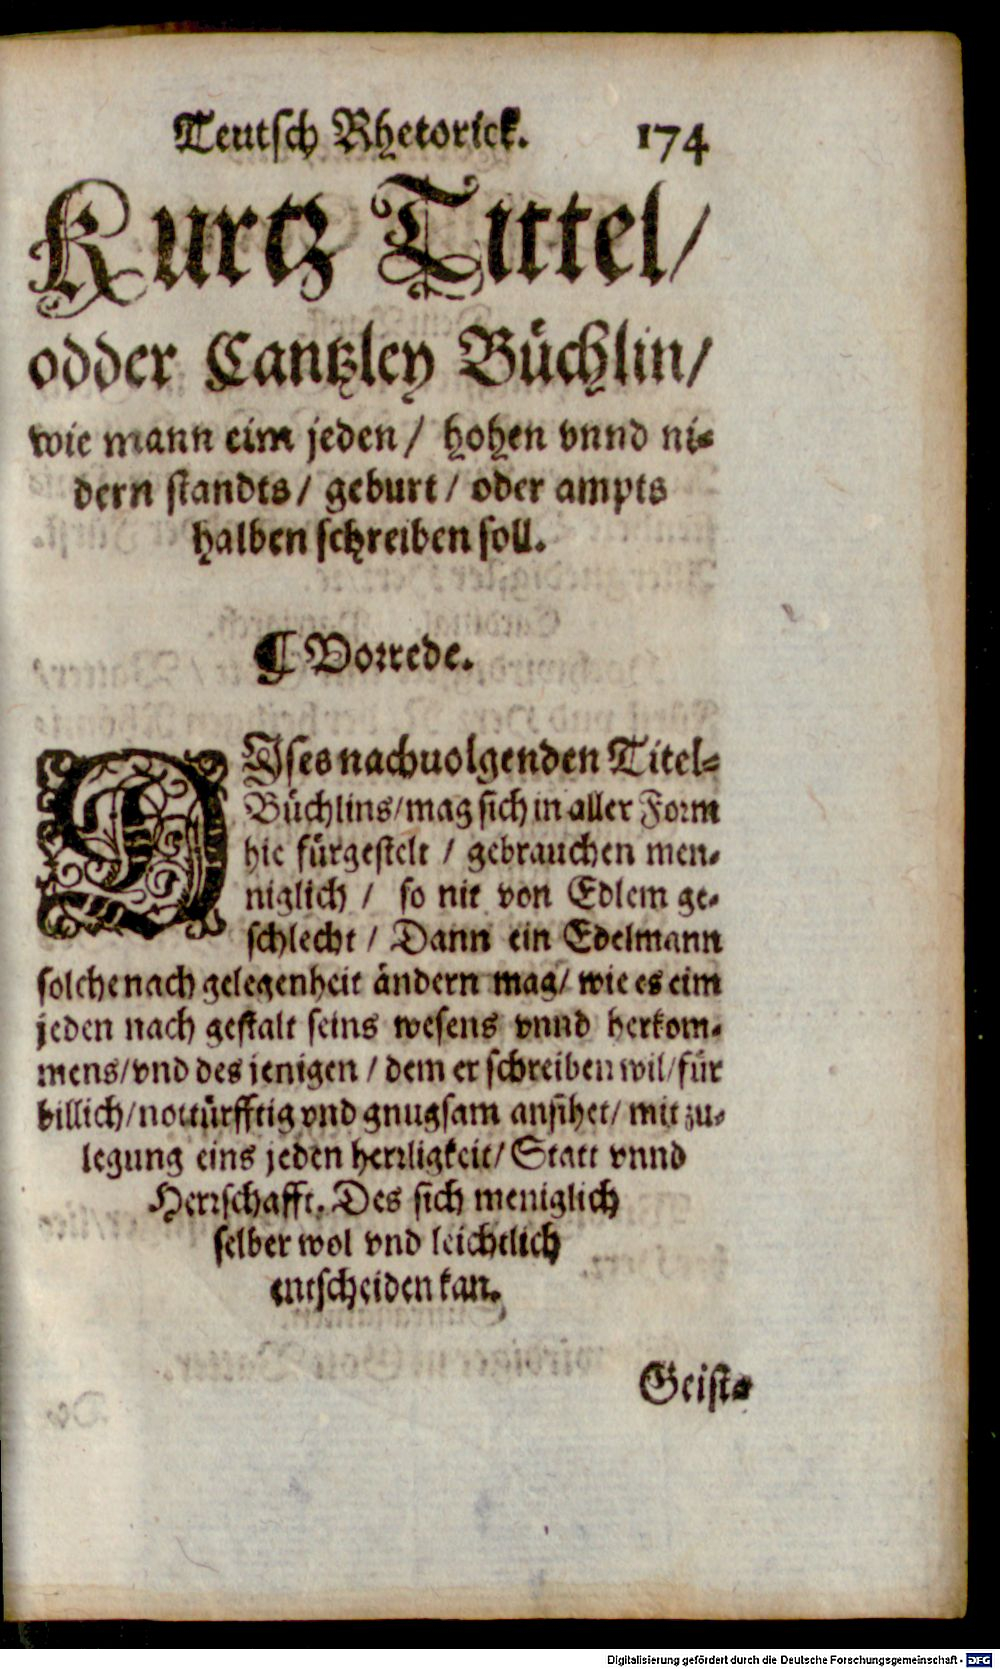 Teutsch Rhetorick. 174
Kurtz Tittel/
odder Cantzley Büchlin/
wie mann eim jeden/ hohen vnnd ni-
dern standts/ geburt/ oder ampts
halben schreiben soll.
¶ Vorrede.
DJses nachuolgenden Titel-
Büchlins/mag sich in aller Form
hie fürgestelt / gebrauchen men-
niglich / so nit von Edlem ge-
schlecht / Dann ein Edelmann
solche nach gelegenheit ändern mag/ wie es eim
jeden nach gestalt seins wesens vnnd herkom-
mens/vnd des jenigen / dem er schreiben wil/für
billich/notürfftig vnd gnugsam ansihet/ mit zu-
legung eins jeden herrligkeit/ Statt vnnd
Herrschafft. Des sich meniglich
selber wol vnd leichtlich
entscheiden kan.
Geist-
Digitalisierung gefördert durch die Deutsche Forschungsgemeinschaft - DFG